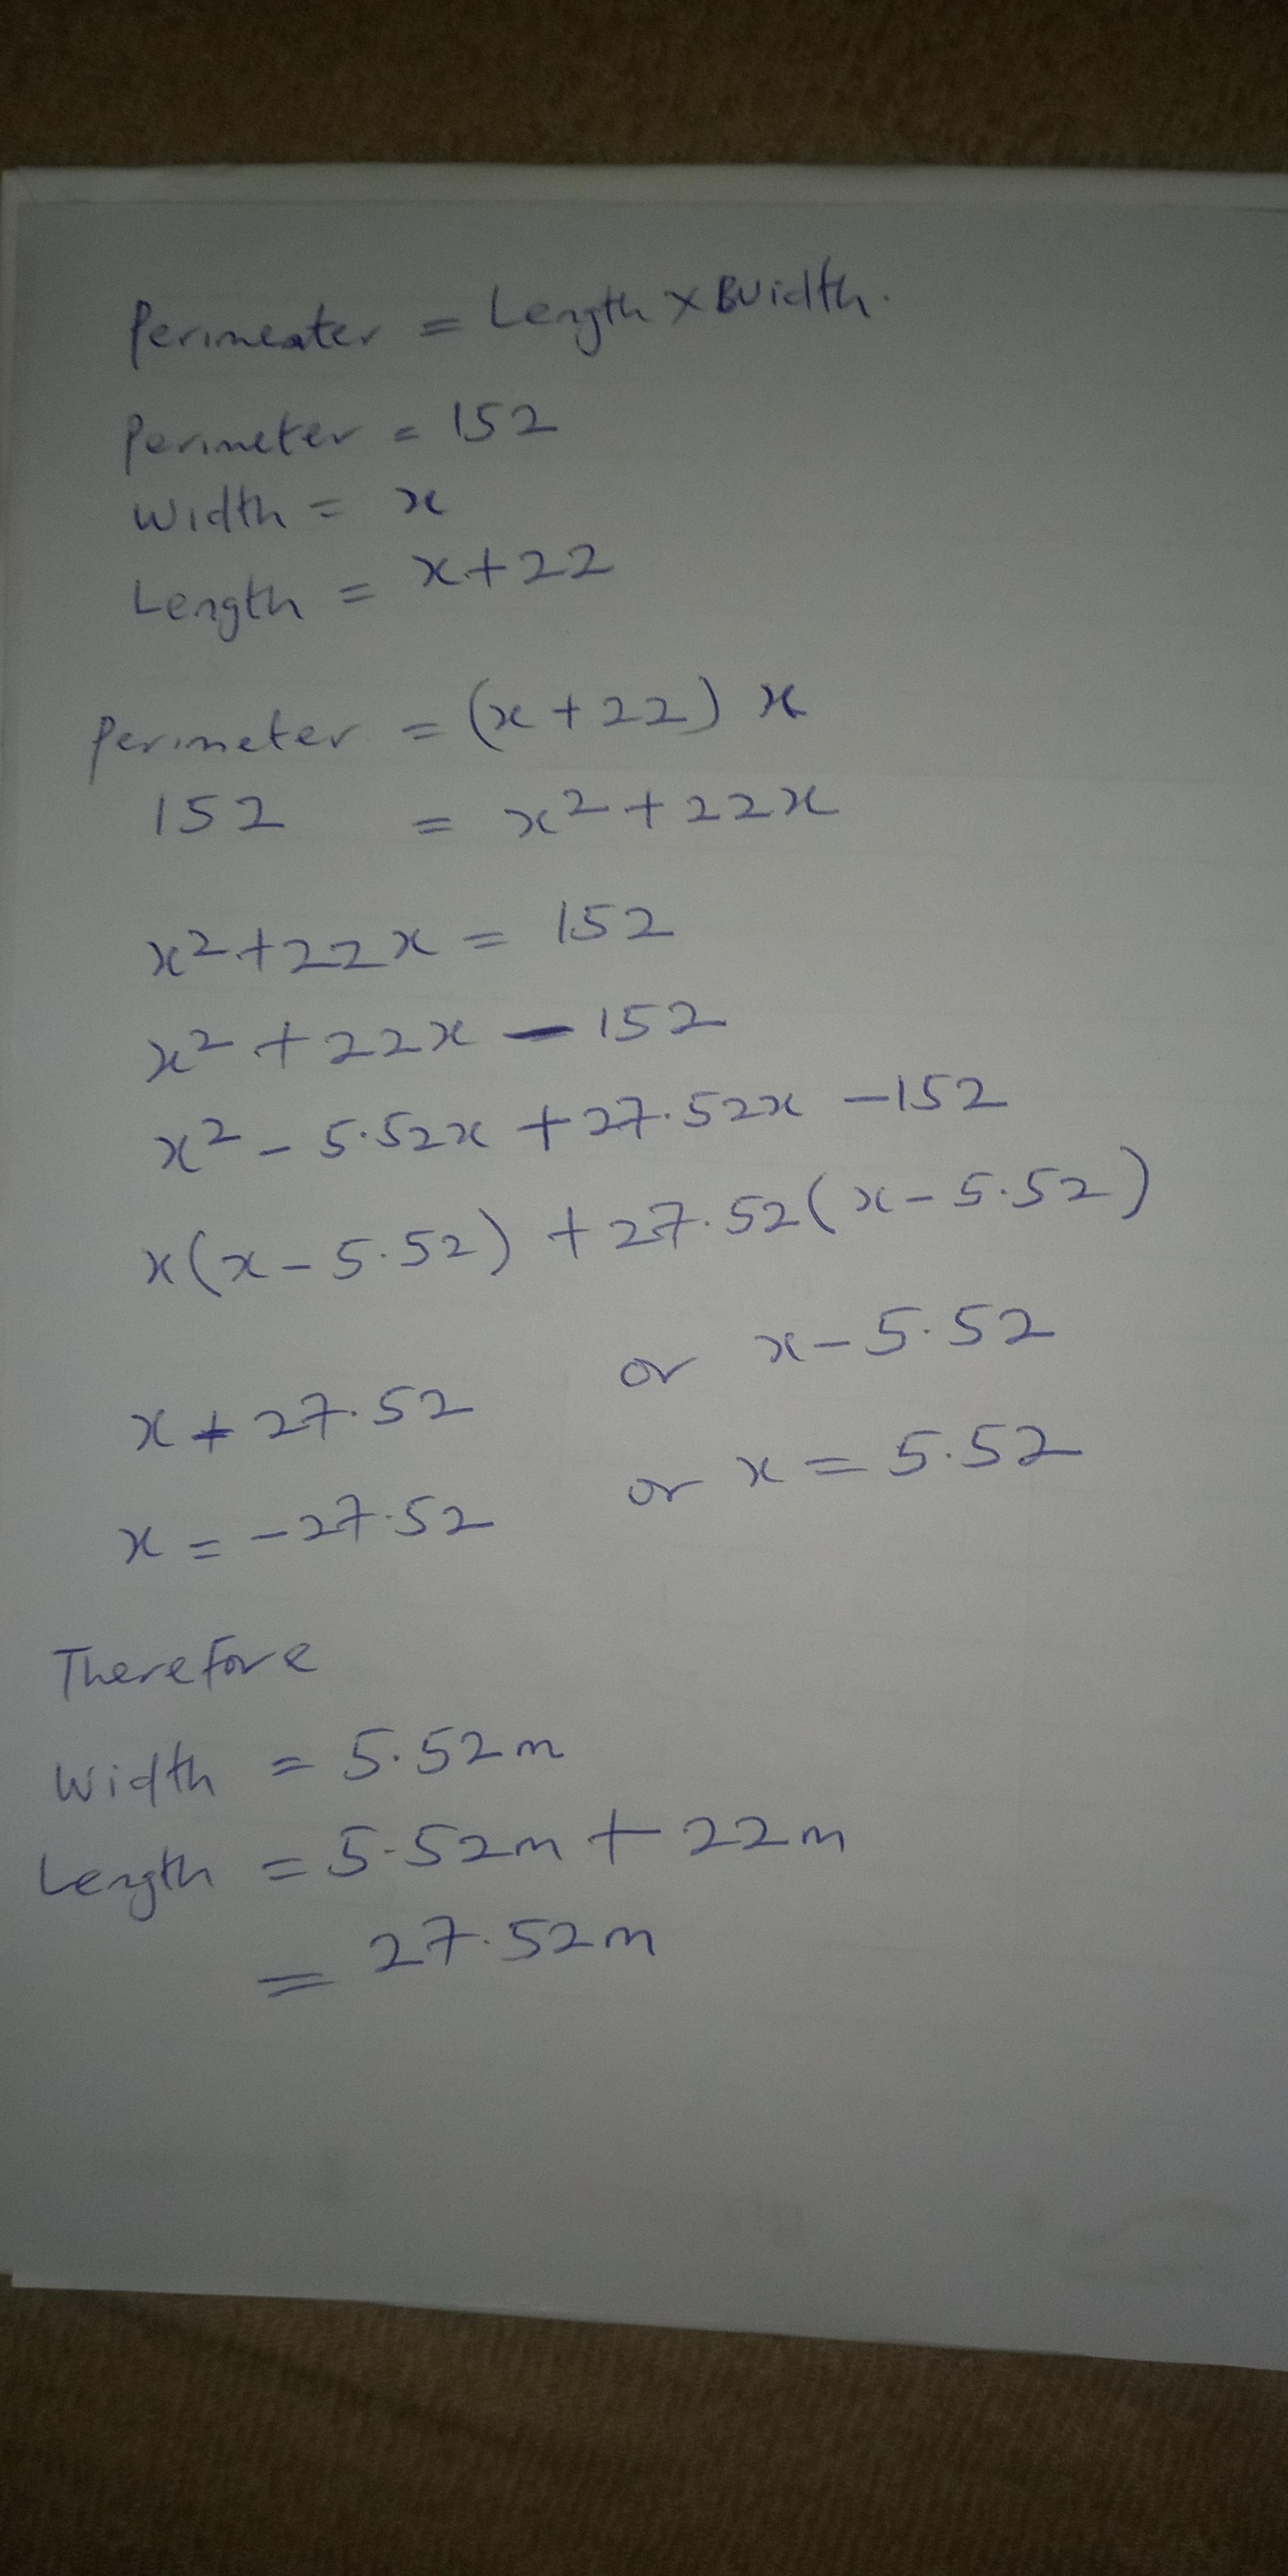 Perimeater = Length x Width.
Perimeter = 152
Width = x
Length = x+22
Perimeter = (x+22) x
152 = x²+22x
x²+22x = 152
x² + 22x - 152
x² - 5.52x + 27.52x - 152
x(x - 5.52) + 27.52(x - 5.52)
x + 27.52 or x - 5.52
x = -27.52 or x = 5.52
Therefore
Width = 5.52m
Length = 5.52m + 22m
= 27.52m